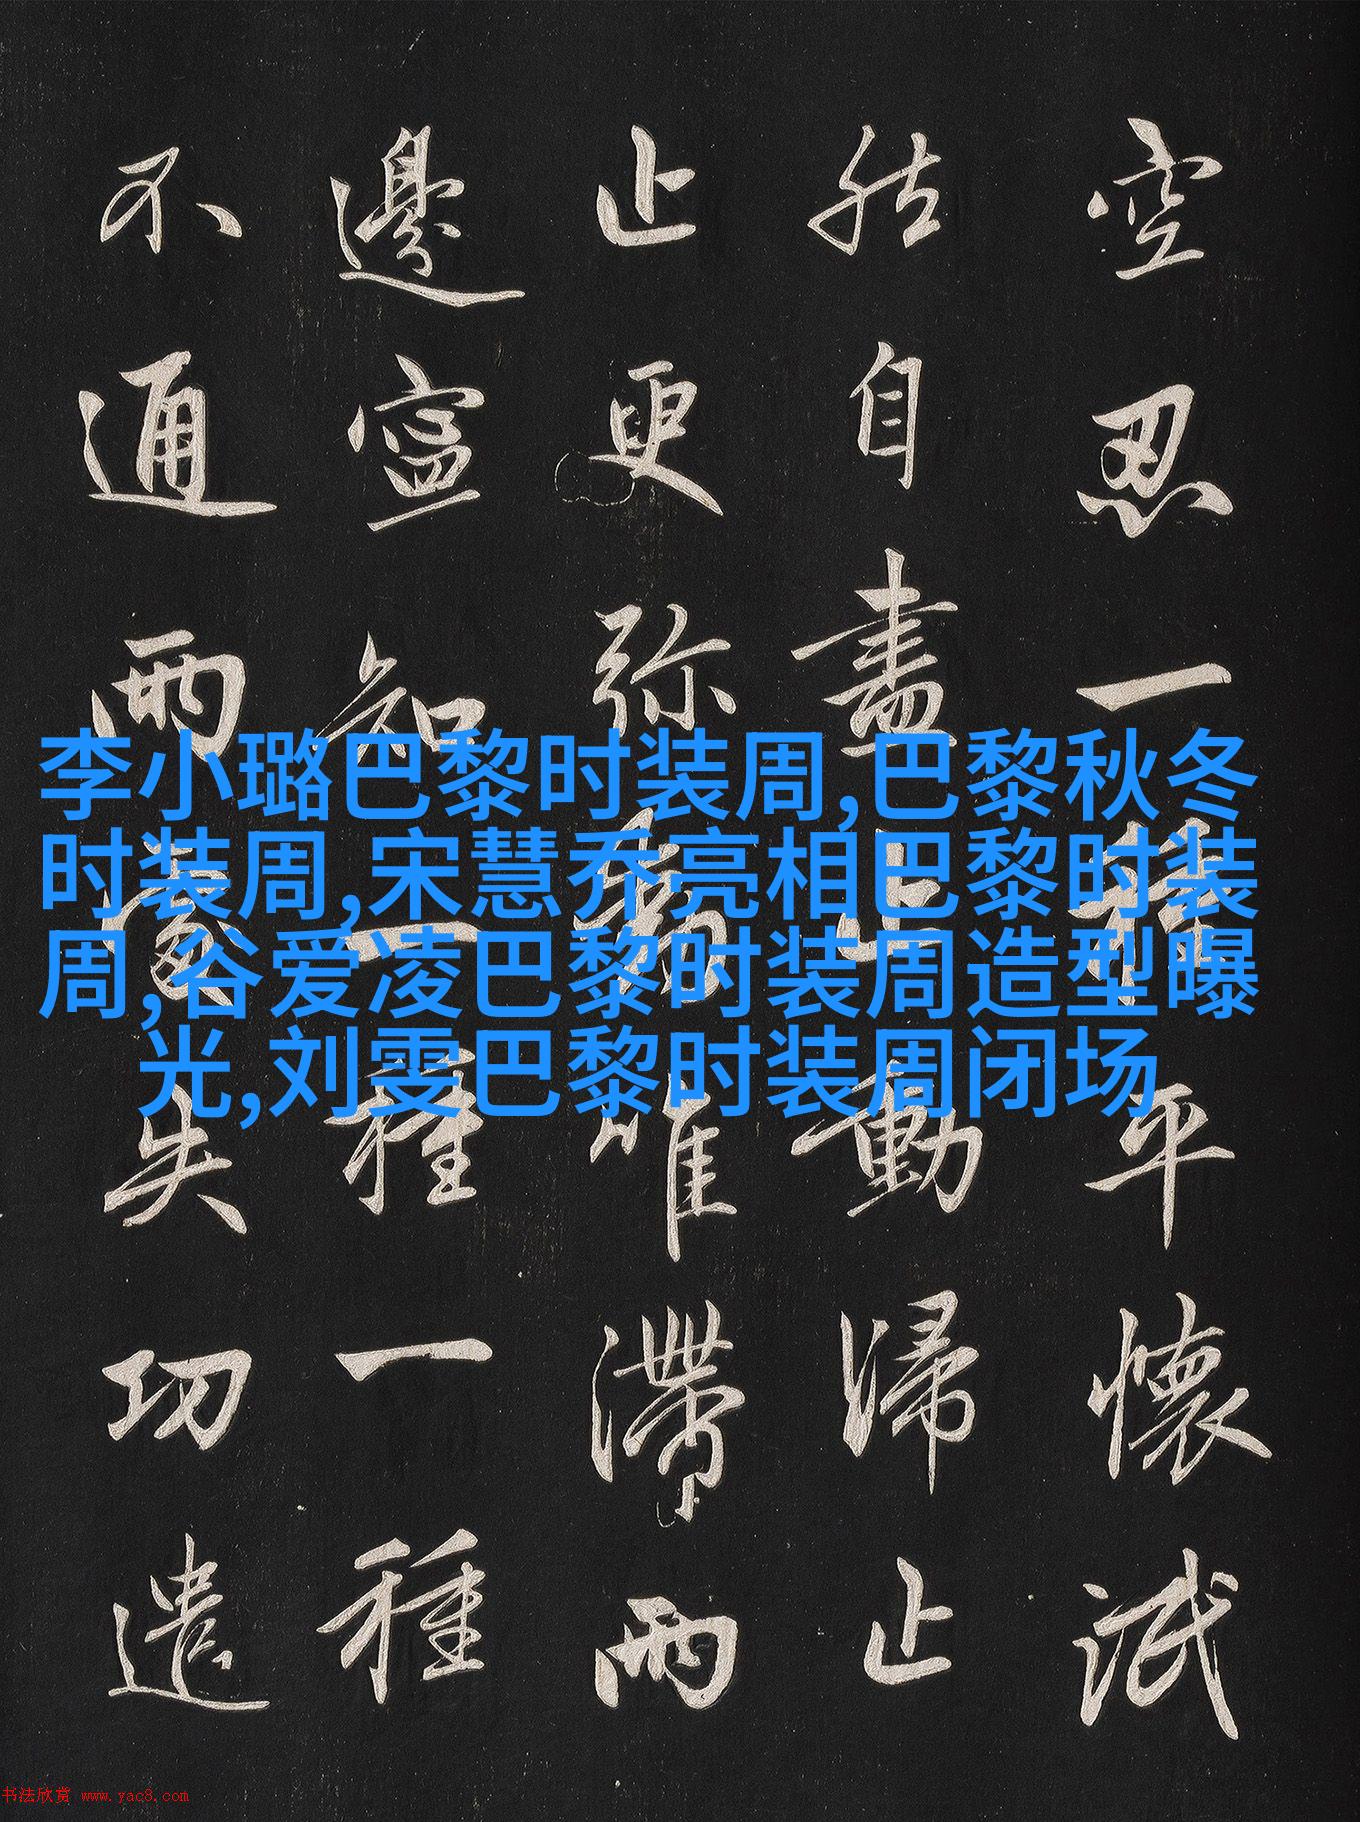 空忍一種平懷泯
然自盡止動歸止
止更弥動唯滯兩
邊寧知一種一種
不通兩處失功遣
李小璐巴黎时装周,巴黎秋冬
时装周,宋慧乔亮相巴黎时装
周,谷爱凌巴黎时装周造型曝
光,刘雯巴黎时装周闭场
书法欣赏 www.yac8.com